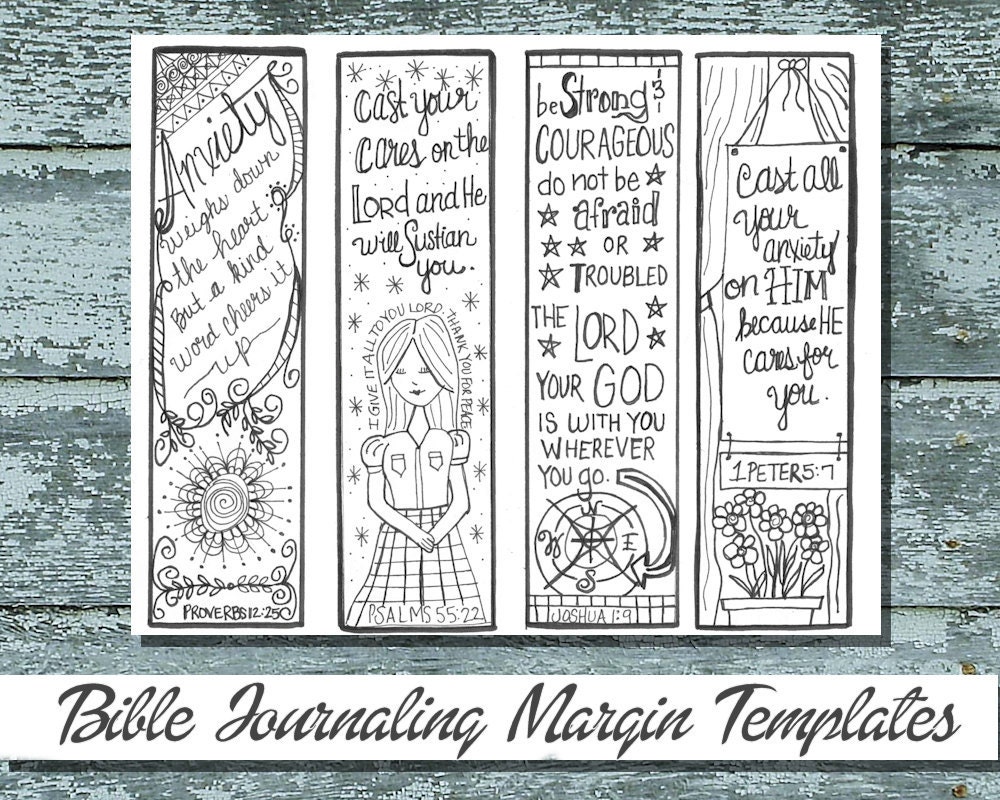 Anxiety
weighs down
the heart
But a kind
word cheers it
up
PROVERBS 12:25
Cast your
cares on the
LORD and He
will Sustian
you.
I GIVE IT ALL TO YOU LORD. THANK YOU FOR PEACE
PSALMS 55:22
be Strong &
COURAGEOUS
do not be
afraid
OR
TROUBLED
THE LORD
YOUR GOD
IS WITH YOU
WHEREVER
YOU go.
N
W E
S
JOSHUA 1:9
Cast all
your
anxiety
on HIM
because HE
cares for
you.
1 PETER 5:7
Bible Journaling Margin Templates